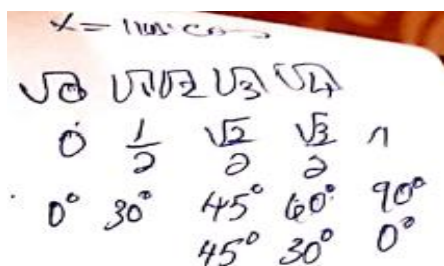 x =
√0 √1 √2 √3 √4
0 1/2 √2/2 √3/2 1
0° 30° 45° 60° 90°
45° 30° 0°